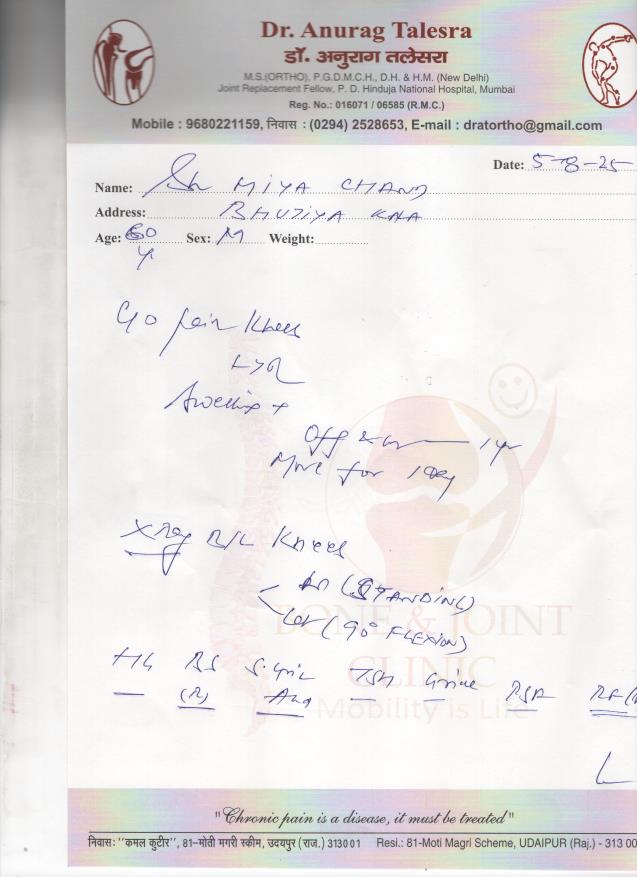 Dr. Anurag Talesra
डॉ. अनुराग तलेसरा
M.S.(ORTHO), P.G.D.M.C.H., D.H. & H.M. (New Delhi)
Joint Replacement Fellow, P. D. Hinduja National Hospital, Mumbai
Reg. No.: 016071 / 06585 (R.M.C.)
Mobile : 9680221159, निवास : (0294) 2528653, E-mail : dratortho@gmail.com
Date: 5-8-25
Name: Sh MIYA CHAND
Address: BHUJIYA
Age: 60 Sex: M Weight:
y
C/O Pain Knees
L>R
Swelling +
Off & on 1 yr
More for
X Ray B/L Knees
AP (STANDING)
Lat (90° FLEXION)
BONE & JOINT
CLINIC
Mobility is Life
Hb BS S. Uric TSH
(R) Acid
"Chronic pain is a disease, it must be treated"
निवास: "कमल कुटीर", 81-मोती मगरी स्कीम, उदयपुर (राज.) 313001 Resi.: 81-Moti Magri Scheme, UDAIPUR (Raj.) - 313 00